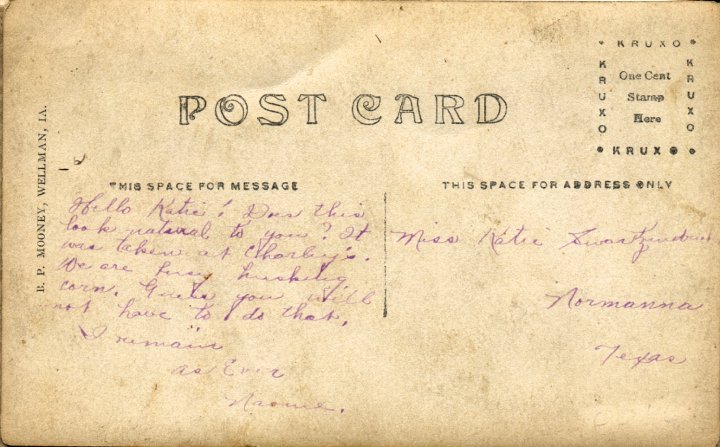 KRUXO
KRUXO
KRUXO
KRUXO
One Cent
Stamp
Here
POST CARD
B. P. MOONEY, WELLMAN, IA.
THIS SPACE FOR MESSAGE
THIS SPACE FOR ADDRESS ONLY
Hello Katie! Does this
look natural to you? It
was taken at Charley's.
We are busy husking
corn. Guess you will
not have to do that.
I remain
as Ever
Miss Katie
Normanna
Texas